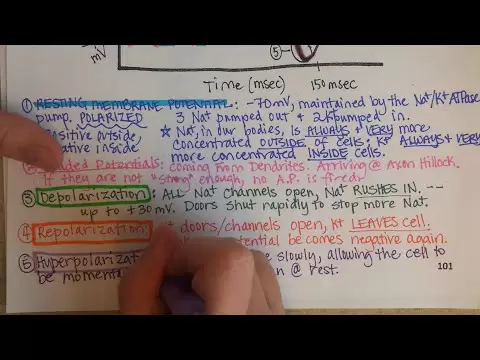 mV
⑤-
Time (msec) 150msec
① RESTING MEMBRANE POTENTIAL: -70mV, maintained by the Na+/K+ ATPase
pump. POLARIZED 3 Na+ pumped out + 2 K+ pumped in.
Positive outside, ☆ Na+, in our bodies, is ALWAYS + VERY more
ative inside concentrated OUTSIDE of cells; K+ ALWAYS + VERY
more concentrated INSIDE cells.
② ded Potentials: coming From Dendrites. Arriving @ Axon Hillock.
If they are not "strong" enough, no A.P. is fired
③ Depolarization: ALL Na+ channels open, Na+ RUSHES IN, --
up to +30mV. Doors shut rapidly to stop more Na+.
④ Repolarization doors/channels open, K+ LEAVES cell.
tential becomes negative again.
⑤ Hyperpolarizat e slowly, allowing the cell to
be momenta n @ rest.
101